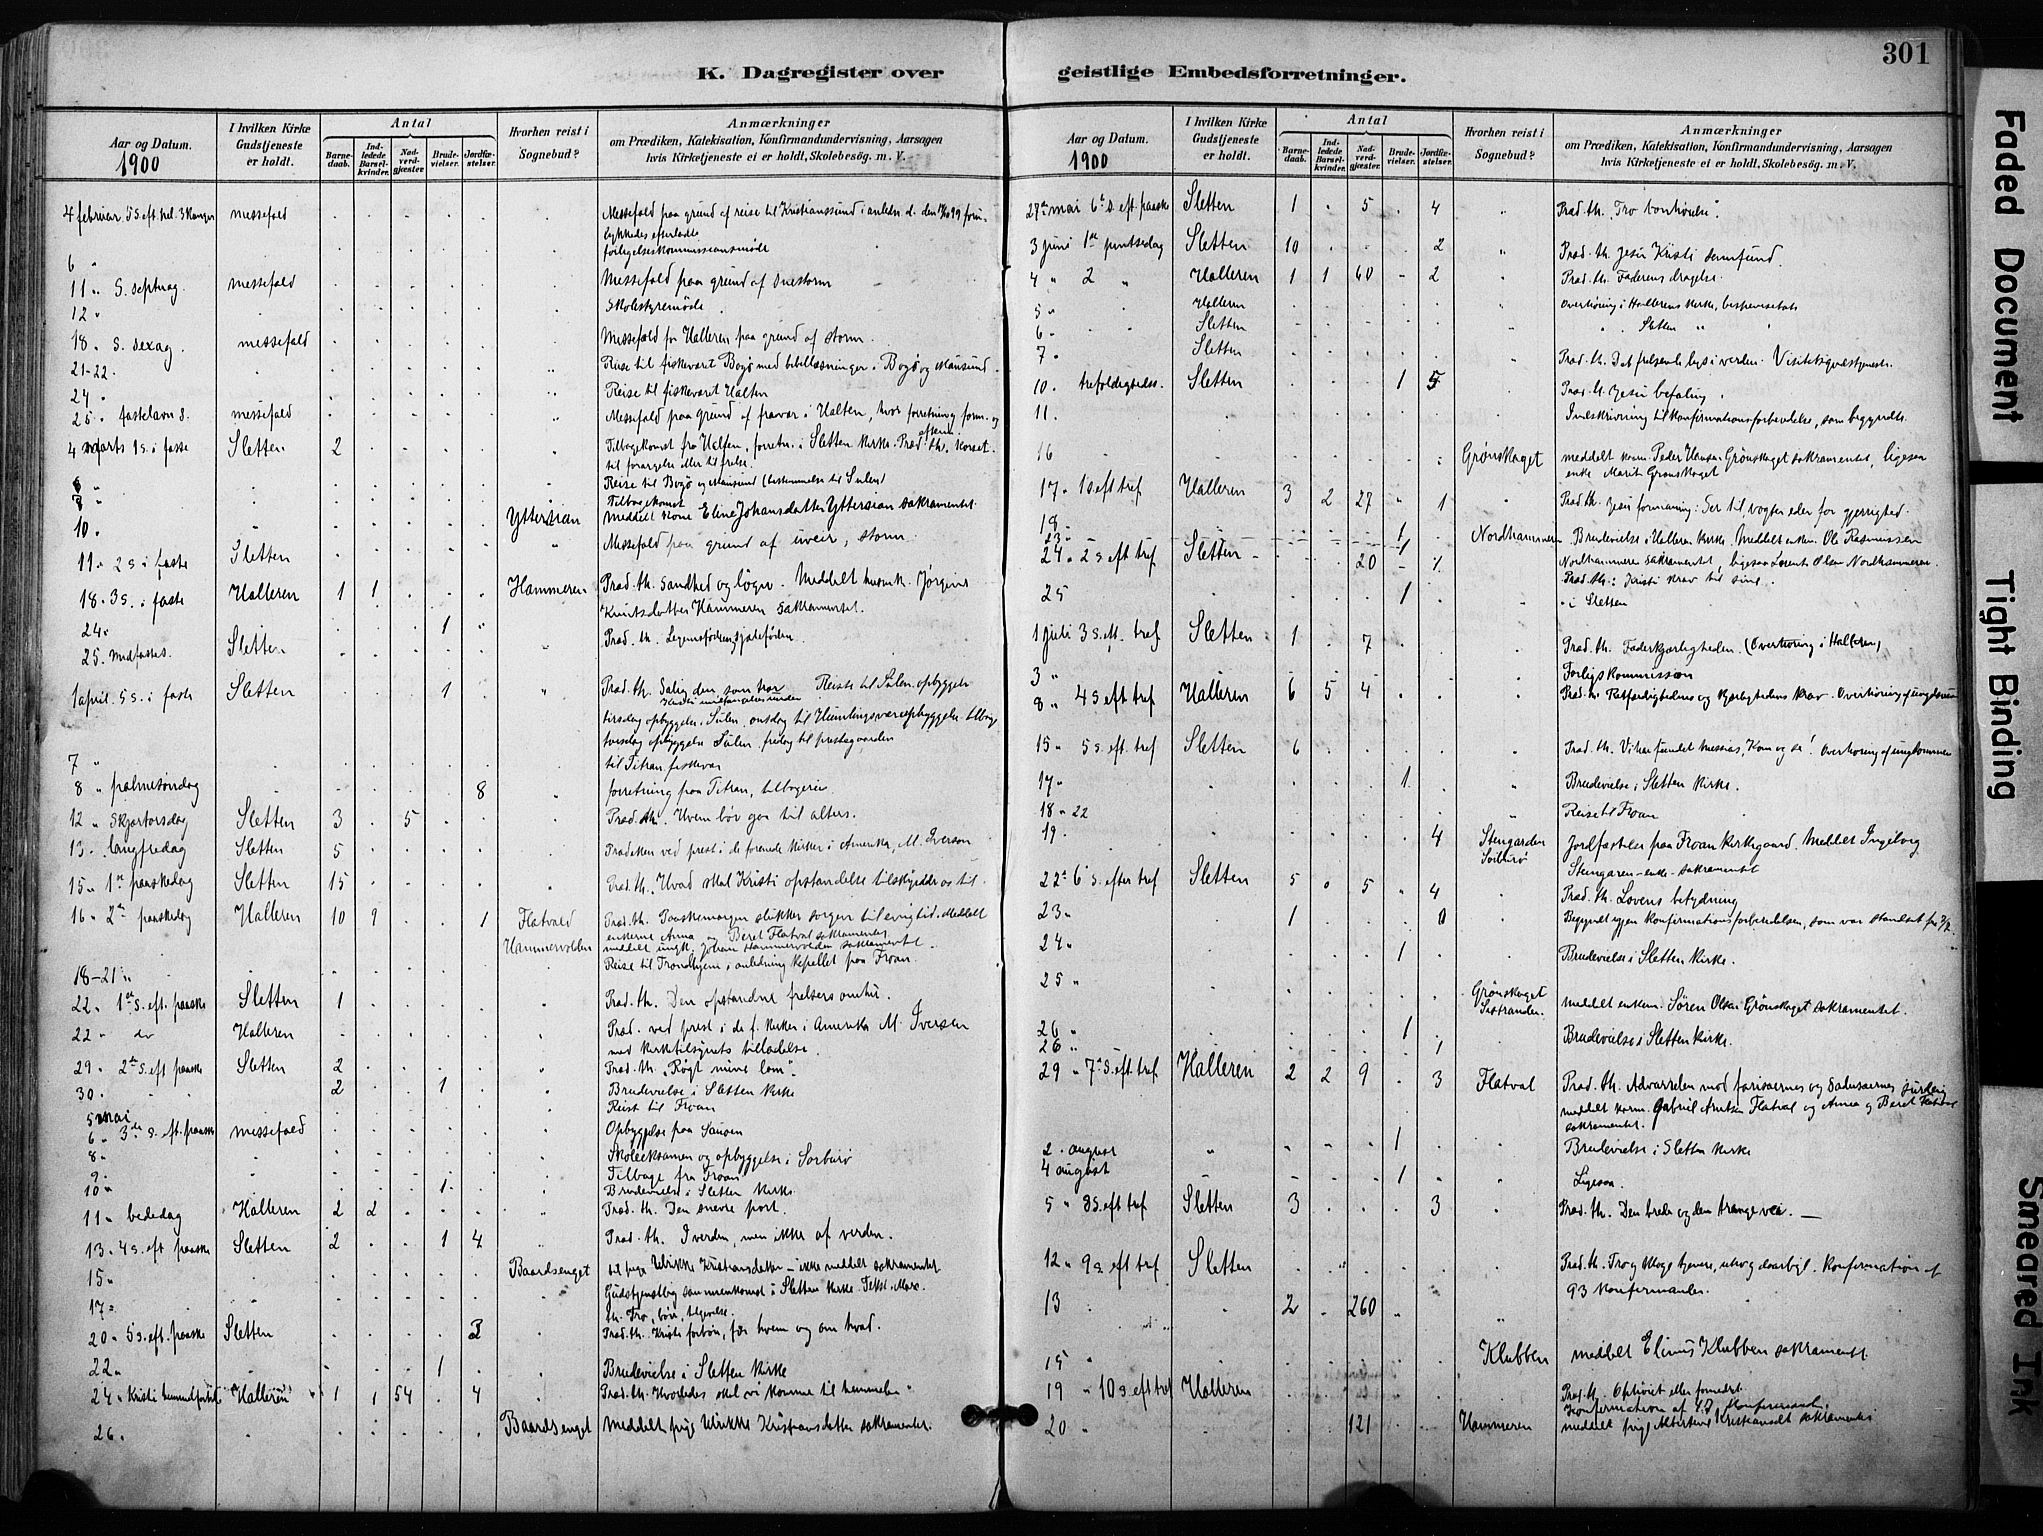 K. Dagregister over
Aar og Datum.
1900
I hvilken Kirke Gudstjeneste er holdt.
Antal
Barnedaab.
Indledede Barselkvinder.
Nadverdgjæster.
Brudevielser.
Jordfæstelser.
Hvorhen reist i Sognebud?
Anmærkninger
om Prædiken, Katekisation, Konfirmandundervisning, Aarsagen
hvis Kirketjeneste ei er holdt, Skolebesøg. m. V.
4 februar. 5 s. eft. hel. 3 konger messefald Messefald paa grund af reise til Kristianssund i anledn. d. den
forligelseskommissionsmøde
6 "
11 " S. septuag. messefald Messefald paa grund af snestorm
12 " Skolestyremøde
18 " S. sexag. messefald Messefald for Halleren paa grund af storm.
21-22. Reise til fiskeværet Bogø med bibellæsninger i Bogø og Mausund.
24 " Reise til fiskeværet Halten
25 " fastelavn s. messefald Messefald paa grund af fravær i Halten, hvor forretning form. og
4 marts 1 s. i faste Sletten 2 Tilbagekomst fra Halten, forretn. i Sletten kirke. Præd. th. Korset
til forargelse eller til frelse.
Reise til Bogø og Mausund
Tilbagekomst
10 " Yttersian meddelt kone Eline Johansdatter Yttersian sakramentet.
11 " 2 s. i faste Sletten Messefald paa grund af uveir, storm.
18 " 3 s. i faste Halleren 1 1 Hammeren Præd. th. Sandhed og løgn. Meddelt husmk. Jørgine
Knutsdatter Hammeren sakramentet.
24 " 1
25. Midfastes. Sletten Præd. th. Legemsføden, sjæleføden.
1 april. 5 s. i faste Sletten 1 Præd. th. Salig den, som har Reiste til Sulen. opbyggelse
tirsdag opbyggelse, Sulen, onsdag til Humlingsvær opbyggelse. tilbage
torsdag opbyggelse Sulen. fredag til prestegaarden
7 " til Titran fiskevær
8 " palmesøndag 8 forretning paa Titran, tilbagereise
12 " Skjærtorsdag Sletten 3 5 Præd. th. Hvem bør gaa til alters.
13 " langfredag Sletten 5 Prædiken ved prest i de forenede kirker i Amerika, M. Iversen
15 " 1st paaskedag Sletten 15 Præd. th. Hvad skal Kristi opstandelse tilskynde os til.
16 " 2den paaskedag Halleren 10 9 1 Flatvald Præd. th. Paaskemorgen slukker sorgen til evig tid. Meddelt
enkerne Anna og Beret Flatval sakramentet
Hammervolden meddelt ungk. Johan Hammervolden sakramentet.
18-21 " Reise til Trondhjem i anledning kapellet paa Froan.
22. 1st s. eft. paaske Sletten 1 Præd. th. Den opstandne frelsers omhu.
22 " do Halleren Præd. ved prest i de f. kirker i Amerika M. Iversen
med kirketilsynets tilladelse.
29. 2den s. eft. paaske Sletten 2 Præd. th. "Røgt mine lam".
30. 2 1 Brudevielse i Sletten kirke
5 mai Reist til Froan
6 " 3die s. eft. paaske messefald Opbyggelse paa Sauøen
8 " Skoleeksamen og opbyggelse i Sørburø
9 " Tilbage fra Froan
10 " 1 Brudevielse i Sletten kirke.
11 " bededag Halleren 2 2 Præd. th. Den snevre port.
13. 4 s. eft. paaske Sletten 2 1 4 Præd. th. I verden, men ikke af verden.
15 " Baardsenget til pige Ulrikke Kristiansdatter – ikke meddelt sakramentet
17 " Gudstjenstlig sammenkomst i Sletten kirke.
th. Tro, bøn, tilgivelse.
20 " 5 s. eft. paaske Sletten Præd. th. Kristi forbøn, for hvem og om hvad.
22 " 1 Brudevielse i Sletten kirke
24 " Kristi himmelfartsd. Halleren 1 1 54 4 Præd. th. Hvorledes skal vi komme til himmelen
26. Baardsenget Meddelt pige Ulrikke Kristiansdatter sakramentet.
geistlige Embedsforretninger.
301
Aar og Datum.
1900
I hvilken Kirke Gudstjeneste er holdt.
Antal
Barnedaab.
Indledede Barselkvinder.
Nadverdgjæster.
Brudevielser.
Jordfæstelser.
Hvorhen reist i Sognebud?
Anmærkninger
om Prædiken, Katekisation, Konfirmandundervisning, Aarsagen
hvis Kirketjeneste ei er holdt, Skolebesøg. m. V.
27de mai 6te s. eft. paaske Sletten 1 5 4 Præd. th.
3 juni 1st pintsedag Sletten 10 2 Præd. th. Jesu Kristi samfund.
4 " 2 " Halleren 1 1 60 2 Præd. th. Faderens dragelse.
5 " Halleren Overhøring i Hallerens kirke, bispevisitats
6 " Sletten " Sletten "
7 " Sletten Præd. th. Det frelsende lys i verden. Visitatsgudstjeneste.
10. trefoldighedss. Sletten 1 5 Præd. th. Jesu befaling.
11. Indskrivning til Konfirmationsforberedelse, som begyndte.
16 Grønskaget meddelt kaarm. Peder Hansen Grønskaget sakramentet, ligesaa
enke Marit Grønskaget
17 " 1 s. eft. tref Halleren 3 2 27 1 Præd. th. Jesu formaning: Ser til vogter eder for gjerrighed.
18 " 1 Nordhammeren Brudevielse i Halleren kirke. Meddelt enkem. Ole Rasmussen
23 " 1
24 " 2 s. eft tref Sletten 20 Nordhammeren Sakramentet, ligesaa Lorents Olsen Nordhammeren.
Præd. th.: Kristi krav til sine.
25 1 " i Sletten
1 juli 3 s. eft. tref Sletten 1 7 Præd. th. Faderkjærligheden. (Overhøring i Halleren)
3 " Forligskommission
8 " 4 s. eft tref Halleren 6 5 4 Præd. th. Retfærdighedens og kjærlighedens krav. Overhøring af ungdommen
15 " 5 s. eft. tref Sletten 6 Præd. th. Vi har fundet Messias, Kom og se! Overhøring af ungdommen
17 " 1 Brudevielse i Sletten kirke.
18 " 22 Reise til Froan
19. 4 Stengarden Sørburø Jordfæstelse paa Froan Kirkegaard. Meddelt Ingeborg
Stengaren – enke – sakramentet
22 " 6 s. efter tref Sletten 5 0 5 4 Præd. th. Lovens betydning
23 " 1 0 Begyndt igjen Konfirmationsforberedelsen, som var standset fra
24 " 1 Brudevielse i Sletten kirke.
25 " Grønskaget Sistranden. Meddelt enkem. Søren Olsen Grønskaget sakramentet.
26 " 1 Brudevielse i Sletten kirke.
26 " 1
29 " 7 s. eft tref Halleren 2 2 9 3 Flatval Præd. th. Advarselen mod farisæernes og Saducæernes surdeig
meddelt kaarm. Gabriel Arntsen Flatval og Anna og Beret Flatval
sakramentet.
2. august 1 Brudevielse i Sletten kirke
4 august 1 Ligesaa.
5 " 8 s. eft tref Sletten 3 3 Præd. th. Den brede og den trange vei. —
12 " 9 s. eft tref Sletten Præd. th. Tro og kloge tjenere, utro og daarlige. Konfirmation af
93 Konfirmander.
13 2 260
15 " Klubben meddelt Elinus Klubben sakramentet
19 " 10 s. eft tref Halleren Præd. th. Ophøiet eller fornedret.
Konfirmation af 47 Konfirmander.
20 " 121 Hammeren meddelt pige Albertine Kristiansdt sakramentet
Faded Document
Tight Binding
Smeared Ink